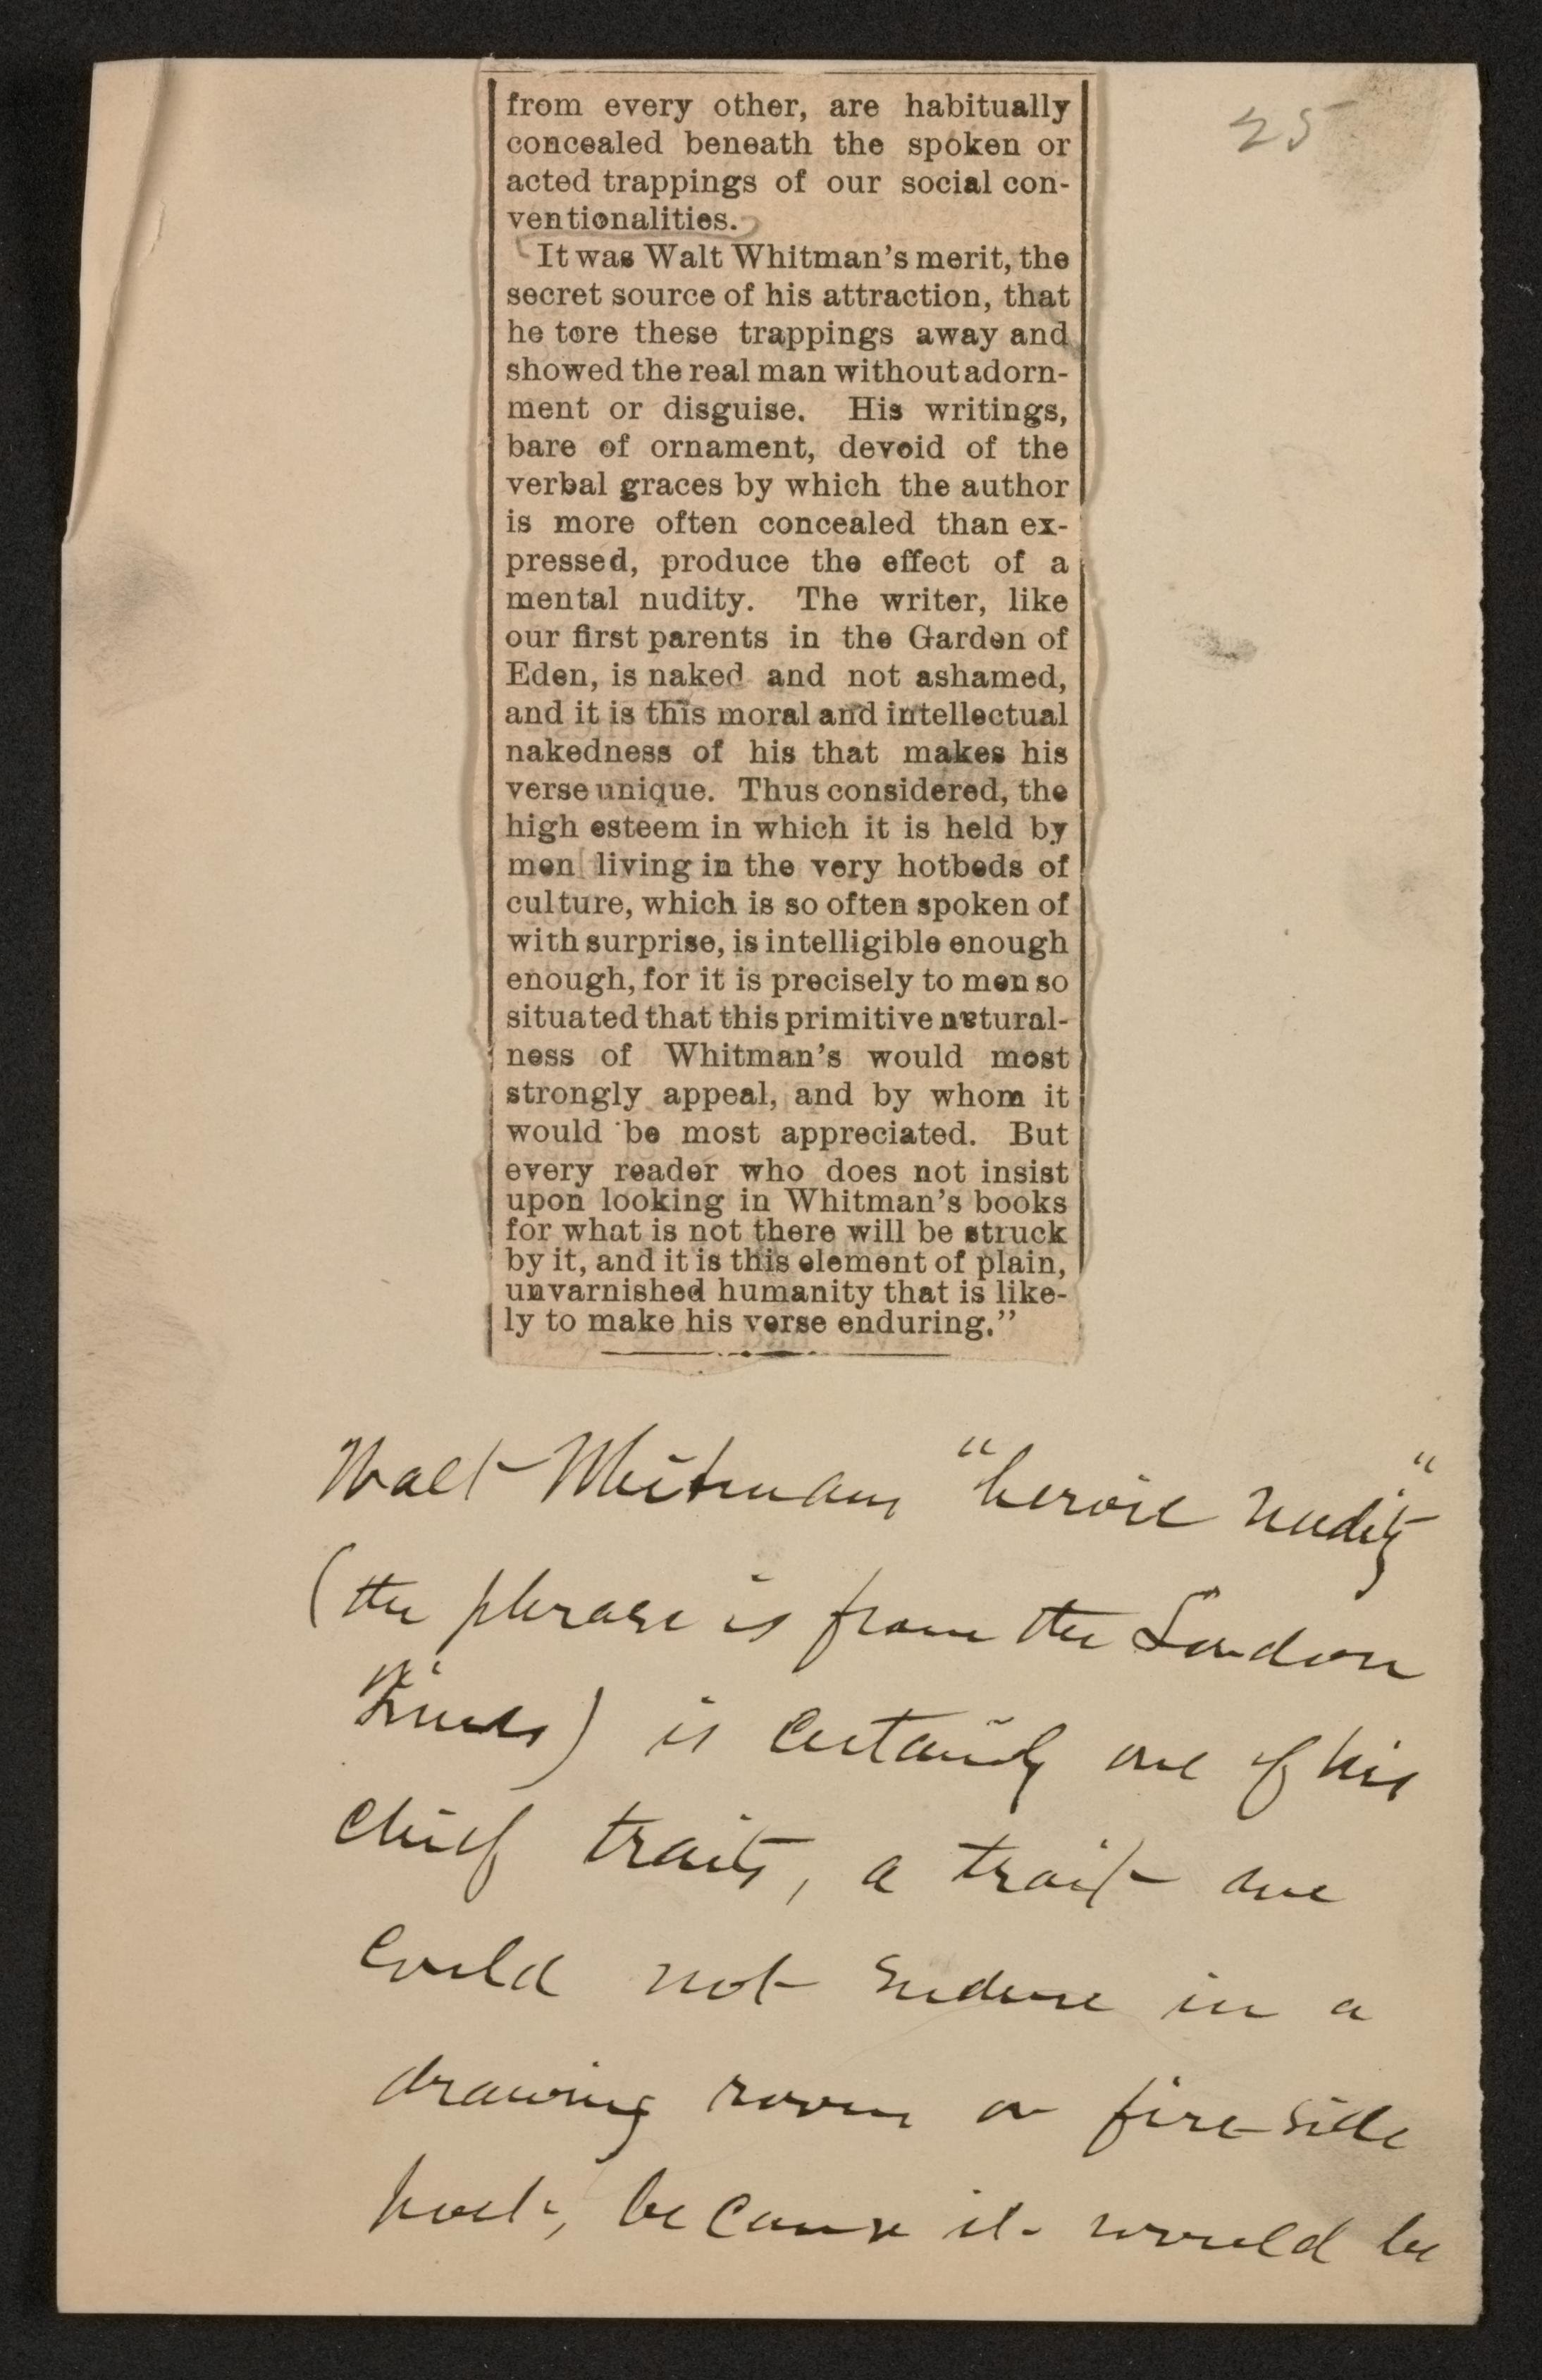 25
from every other, are habitually
concealed beneath the spoken or
acted trappings of our social con-
ventionalities.
It was Walt Whitman's merit, the
secret source of his attraction, that
he tore these trappings away and
showed the real man without adorn-
ment or disguise. His writings,
bare of ornament, devoid of the
verbal graces by which the author
is more often concealed than ex-
pressed, produce the effect of a
mental nudity. The writer, like
our first parents in the Garden of
Eden, is naked and not ashamed,
and it is this moral and intellectual
nakedness of his that makes his
verse unique. Thus considered, the
high esteem in which it is held by
men living in the very hotbeds of
culture, which is so often spoken of
with surprise, is intelligible enough
enough, for it is precisely to men so
situated that this primitive natural-
ness of Whitman's would most
strongly appeal, and by whom it
would be most appreciated. But
every reader who does not insist
upon looking in Whitman's books
for what is not there will be struck
by it, and it is this element of plain,
unvarnished humanity that is like-
ly to make his verse enduring."
Walt Whitman "heroic nudity"
(the phrase is from the London
Times) is certainly one of his
chief traits, a trait one
could not endure in a
drawing room or fire-side
poet, because it would be